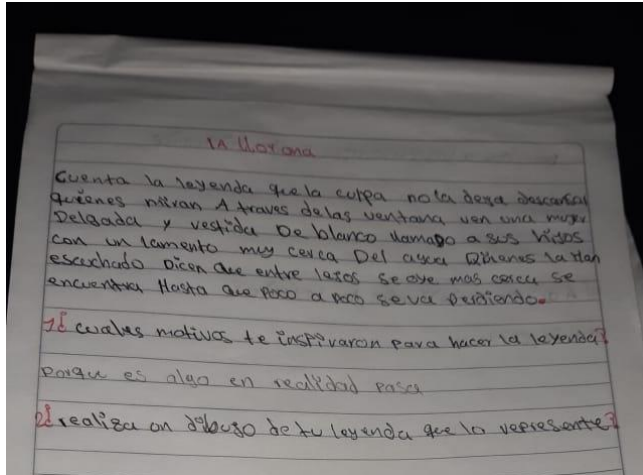 lA llorona
cuenta la leyenda que la culpa no la deja descansar
quienes miran A traves de las ventana ven una mujer
Delgada y vestida De blanco llamado a sus hijos
con un lamento muy cerca Del agua Quienes la Han
escuchado Dicen que entre lejos se oye mas cerca se
encuentra Hasta que poco a poco se va perdiendo.
1¿ cuales motivos te inspiraron para hacer la leyenda?
porqu es algo en realidad pasa
2¿ realiza un dibujo de tu leyenda que lo represente?